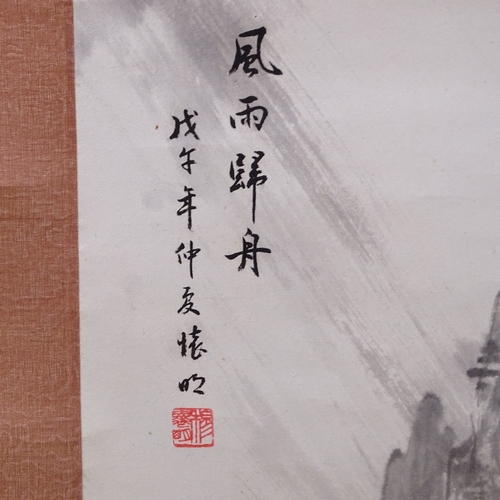 風雨歸舟
戊午年仲夏懷明